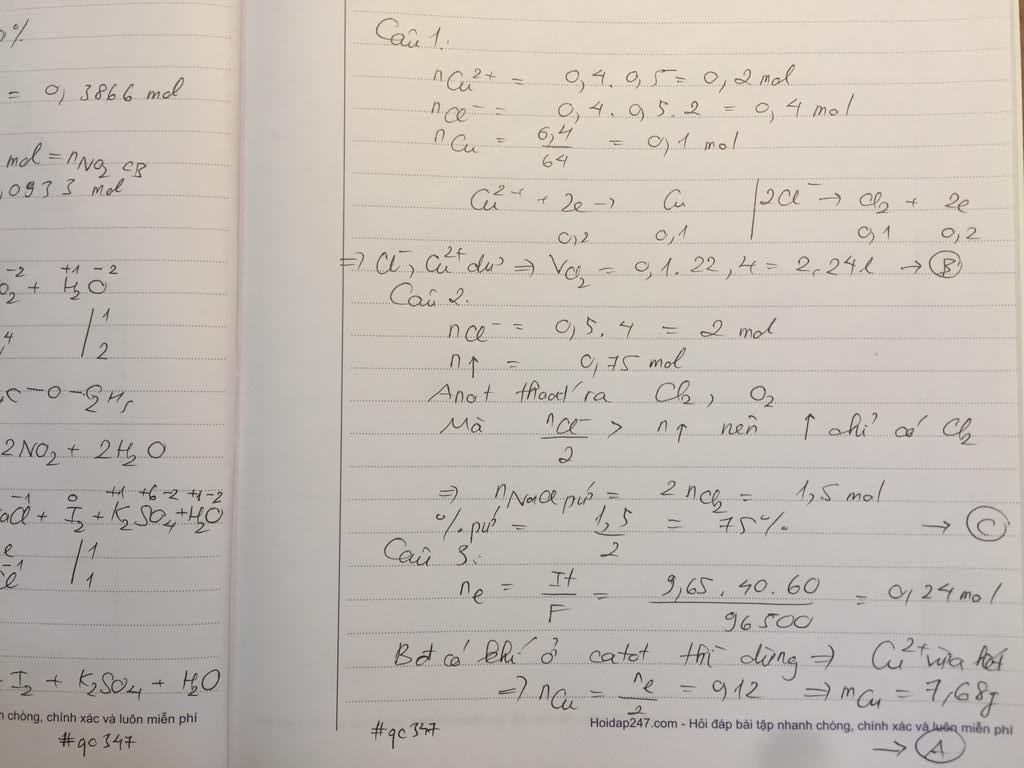 %
= 0,3866 mol
mol = nNO2 CB
,0933 mol
-2 +1 -2
O2 + H2O
4 | 1
| 2
C - O - C2H5
2NO2 + 2H2O
-1 0 +1 +6 -2 +1 -2
aCl + I2 + K2SO4 + H2O
e | 1
| 1
I2 + K2SO4 + H2O
chóng, chính xác và luôn miễn phí
#gc347
Câu 1:
nCu2+ = 0,4.0,5 = 0,2 mol
nCl- = 0,4.0,5.2 = 0,4 mol
nCu = 6,4/64 = 0,1 mol
Cu2+ + 2e → Cu | 2Cl- → Cl2 + 2e
0,2 0,1 | 0,1 0,2
⇒ Cl-, Cu2+ dư ⇒ VCl2 = 0,1.22,4 = 2,24l → B
Câu 2:
nCl- = 0,5.4 = 2 mol
n↑ = 0,75 mol
Anot thoát ra Cl2, O2
Mà nCl-/2 > n↑ nên ↑ chỉ có Cl2
⇒ nNaCl pứ = 2nCl2 = 1,5 mol
% pứ = 1,5/2 = 75% → C
Câu 3:
ne = It/F = 9,65.40.60/96500 = 0,24 mol
Bđ có khí ở catot thì dừng ⇒ Cu2+ vừa hết
⇒ nCu = ne/2 = 0,12 ⇒ mCu = 7,68g
#gc347
Hoidap247.com - Hỏi đáp bài tập nhanh chóng, chính xác và luôn miễn phí
→ A